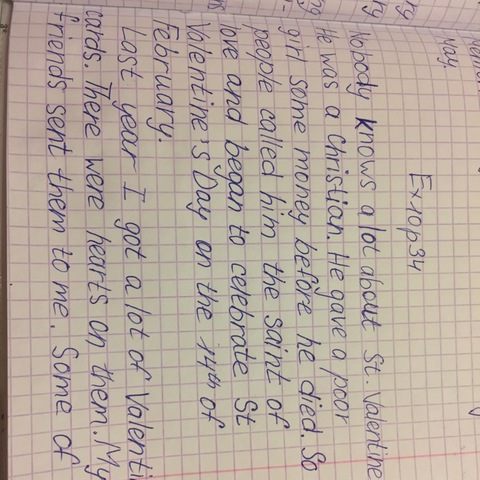 way.
Ex10p34
Nobody knows a lot about St. Valentine
He was a Christian. He gave a poor
girl some money before he died. So
people called him the Saint of
love and began to celebrate St
Valentine's Day on the 14th of
February.
Last year I got a lot of Valenti
cards. There were hearts on them. My
friends sent them to me. Some of